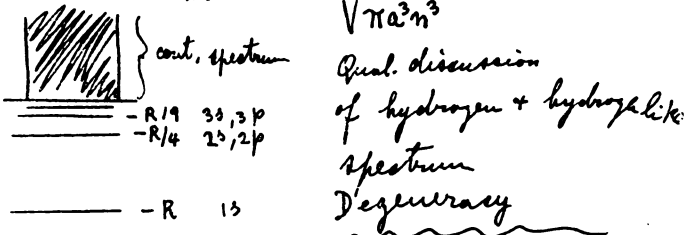 cont. spectrum
- R/9 3s, 3p
- R/4 2s, 2p
- R 1s
√πa³n³
Qual. discussion
of hydrogen + hydrogenlike
spectrum
Degeneracy